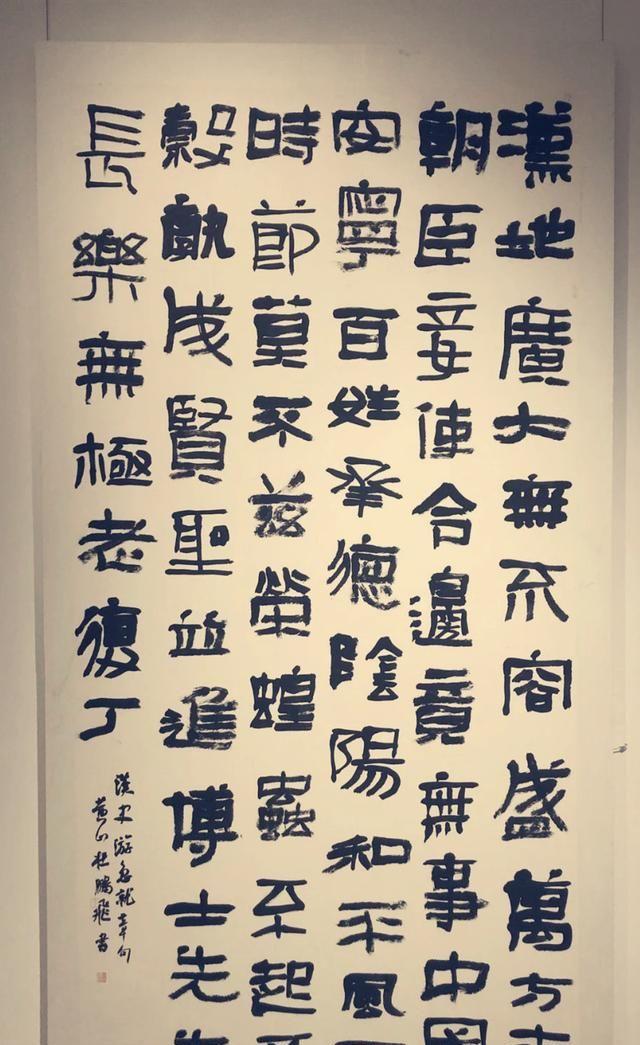 漢地廣大無不容盛萬方
朝臣妾使令邊竟無事中國
安寧百姓承德陰陽和平風
時節莫不茲榮蝗蟲不起
穀孰成賢聖並進博士先
長樂無極老復丁
漢史游急就章句
黄山杜鵬飛書